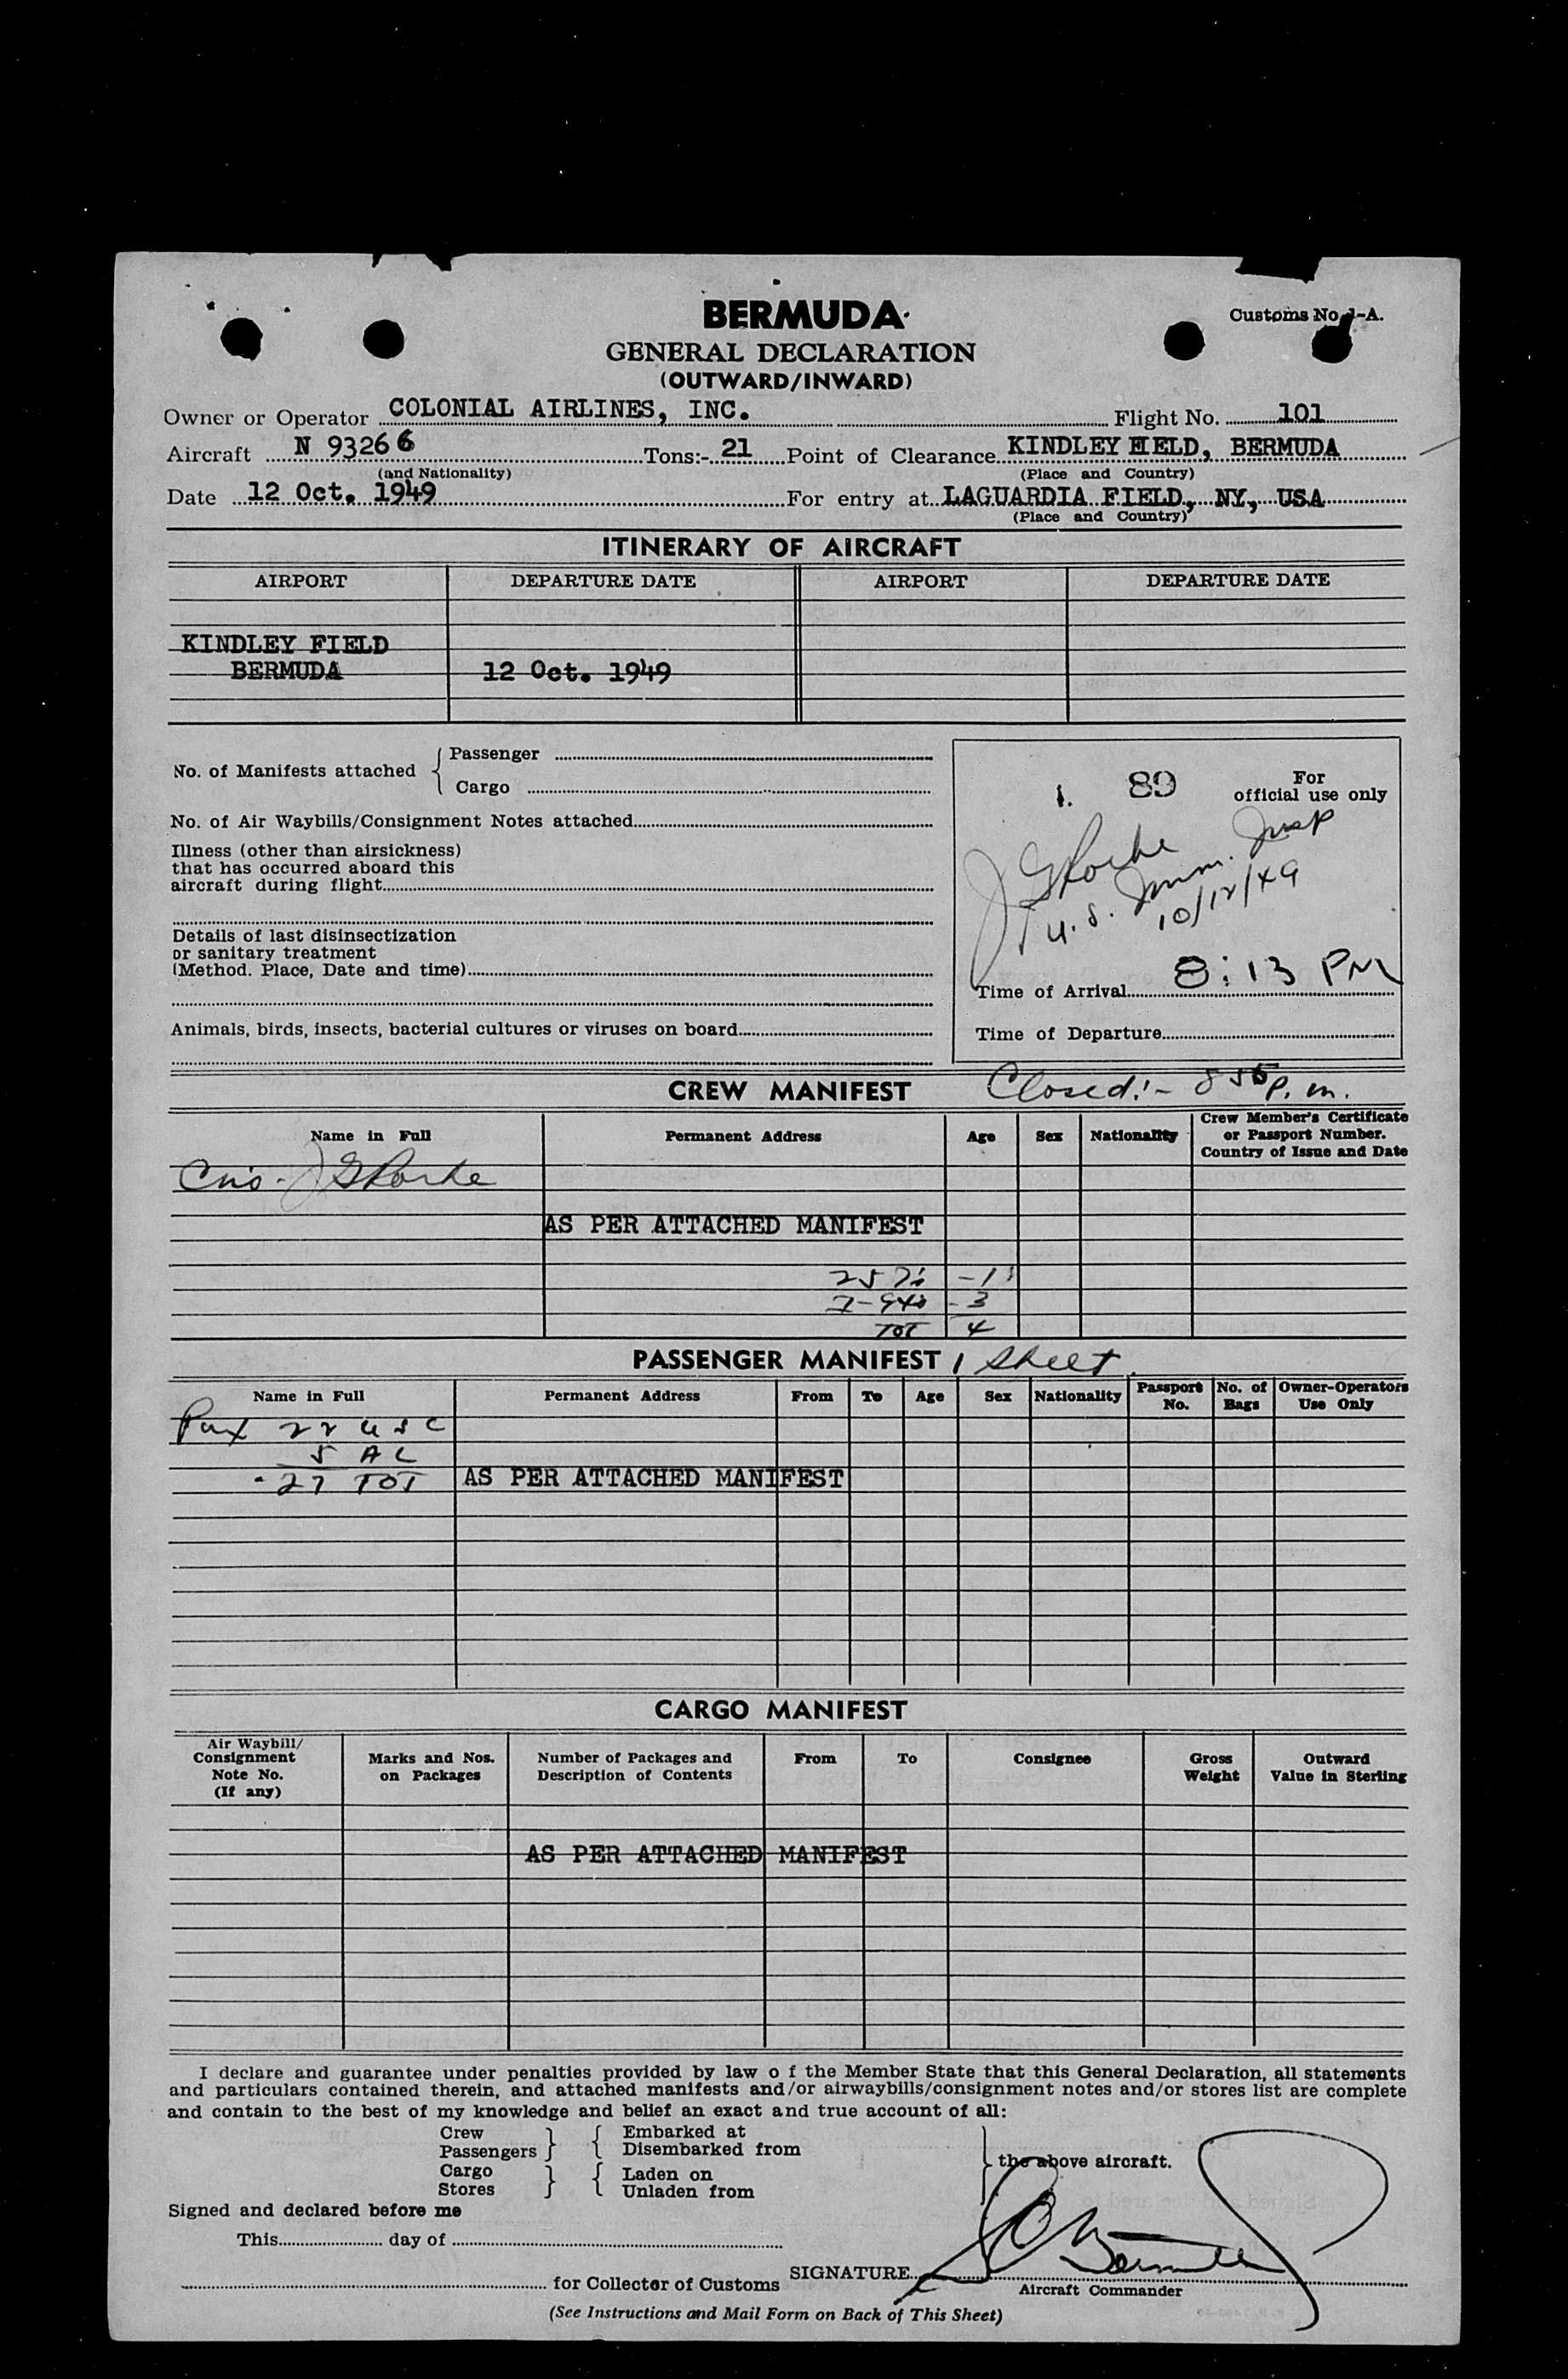 BERMUDA
Customs No. 1-A.
GENERAL DECLARATION
(OUTWARD/INWARD)
Owner or Operator COLONIAL AIRLINES, INC. Flight No. 101
Aircraft N 93266 Tons:- 21 Point of Clearance KINDLEY FIELD, BERMUDA
(and Nationality) (Place and Country)
Date 12 Oct. 1949 For entry at LAGUARDIA FIELD, NY, USA
(Place and Country)
ITINERARY OF AIRCRAFT
AIRPORT DEPARTURE DATE AIRPORT DEPARTURE DATE
KINDLEY FIELD
BERMUDA 12 Oct. 1949
No. of Manifests attached
Passenger
Cargo
No. of Air Waybills/Consignment Notes attached
Illness (other than airsickness)
that has occurred aboard this
aircraft during flight
Details of last disinsectization
or sanitary treatment
(Method. Place, Date and time)
Animals, birds, insects, bacterial cultures or viruses on board
1. 89
For
official use only
J G Rorke
U.S. Imm. Insp
10/12/49
Time of Arrival 8:13 PM
Time of Departure
CREW MANIFEST Closed:- 8 55 p.m.
Name in Full Permanent Address Age Sex Nationality Crew Member's Certificate
or Passport Number.
Country of Issue and Date
J G Rorke
AS PER ATTACHED MANIFEST
- 1
- 3
TOT 4
PASSENGER MANIFEST 1 Sheet
Name in Full Permanent Address From To Age Sex Nationality Passport No. No. of Bags Owner-Operators Use Only
Pax 22 USC
5 AL
27 TOT AS PER ATTACHED MANIFEST
CARGO MANIFEST
Air Waybill/
Consignment
Note No.
(If any)
Marks and Nos.
on Packages
Number of Packages and
Description of Contents
From To Consignee
Gross
Weight
Outward
Value in Sterling
AS PER ATTACHED MANIFEST
I declare and guarantee under penalties provided by law o f the Member State that this General Declaration, all statements
and particulars contained therein, and attached manifests and/or airwaybills/consignment notes and/or stores list are complete
and contain to the best of my knowledge and belief an exact and true account of all:
Crew
Passengers
Embarked at
Disembarked from
Cargo
Stores
Laden on
Unladen from
the above aircraft.
Signed and declared before me
This day of
for Collector of Customs SIGNATURE
Aircraft Commander
(See Instructions and Mail Form on Back of This Sheet)